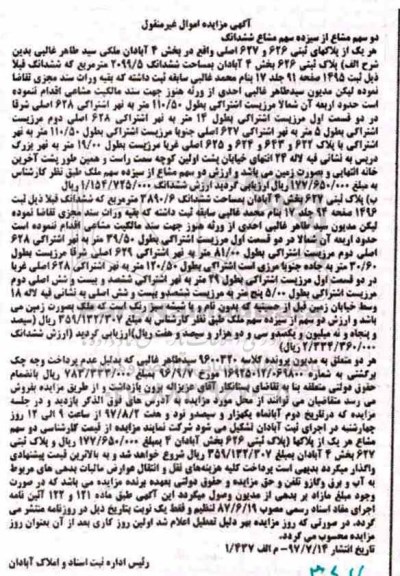 آگهی مزایده اموال غیرمنقول
دو سهم مشاع از سیزده سهم مشاع ششدانگ
هر یک از پلاکهای ثبتی ۶۲۶ و ۶۲۷ اصلی واقع در بخش ۴ آبادان ملکی سید طاهر غالبی بدین
شرح الف) پلاک ثبتی ۶۲۶ بخش ۴ آبادان بمساحت ششدانگ ۲۰۹۹/۵ مترمربع که ششدانگ قبلا
ذیل ثبت ۱۴۹۵ صفحه ۹۱ جلد ۱۷ بنام محمد غالبی سابقه ثبت داشته که بقیه وراث سند مجزی تقاضا
نموده لیکن مدیون سیدطاهر غالبی احدی از ورثه هنوز جهت سند مالکیت مشاعی اقدام ننموده
است حدود اربعه آن شمالا مرزیست اشتراکی بطول ۱۱۰/۵۰ متر به نهر اشتراکی ۶۲۸ اصلی شرقا
در دو قسمت اول مرزیست اشتراکی بطول ۱۴ متر به نهر اشتراکی ۶۲۸ اصلی دوم مرزیست
اشتراکی بطول ۵ متر به نهر اشتراکی ۶۲۷ اصلی جنوبا مرزیست اشتراکی بطول ۱۱۰/۵۰ متر به نهر
اشتراکی با پلاک ۶۲۲ و ۶۴۳ و ۶۲۴ و ۶۲۵ اصلی غربا مرزیست بطول ۱۹/۰۰ متر به نهر بزرگ
دریس به نشانی فیه لاله ۲۴ انتهای خیابان پشت اولین کوچه سمت راست و همین طور پشت آخرین
خانه انتهایی و بصورت زمین می باشد و ارزش دو سهم مشاع از سیزده سهم ملک طبق نظر کارشناس
به مبلغ ۱۷۷/۶۵۰/۰۰۰ ریال ارزیابی گردید ارزش ششدانگ ۱/۱۵۴/۷۲۵/۰۰۰ ریال
ب) پلاک ثبتی ۶۲۷ بخش ۴ آبادان بمساحت ششدانگ ۳۸۹۰/۶ مترمربع که ششدانگ قبلا ذیل ثبت
۱۴۹۶ صفحه ۹۴ جلد ۱۷ بنام محمد غالبی سابقه ثبت داشته که بقیه وراث سند مجزی تقاضا نموده
لیکن مدیون سید طاهر غالبی احدی از ورثه هنوز جهت سند مالکیت مشاعی اقدام ننموده است
حدود اربعه آن شمالا در دو قسمت اول مرزیست اشتراکی بطول ۳۹/۵۰ متر به نهر اشتراکی ۶۲۸
اصلی دوم مرزیست بطول ۸۱/۰۰ متر به نهر اشتراکی ۶۲۹ اصلی شرقا مرزیست بطول
۳۰/۶۰ متر به جاده جنوبا مرزی است اشتراکی بطول ۱۲۰/۵۰ متر به نهر اشتراکی ۶۲۸ اصلی غربا
در دو قسمت اول مرزیست بطول ۲۹ متر به نهر اشتراکی ششصد و بیست و شش اصلی دوم
مرزیست اشتراکی بطول ۵/۰۰ پنج متر به مرزیست ششصدو بیست و شش اصلی به نشانی فیه لاله ۱۸
وسط خیابان زمین قبل از حسینیه که بدون نام و شیشه سبز رنگ است که ملک بصورت زمین می
باشد و ارزش دو سهم از سیزده سهم ملک طبق نظر کارشناس به مبلغ ۳۵۹/۱۳۲/۳۰۷ ریال (سیصد
و پنجاه و نه میلیون و یکصدو سی و دو هزار و سیصد و هفت ریال)ارزیابی گردید (ارزش ششدانگ
۲/۳۳۴/۳۶۰/۰۰۰ ریال)
هر دو متعلق به مدیون پرونده کلاسه ۹۶۰۰۳۲۰ سیدطاهر غالبی که بدلیل عدم پرداخت وجه چک
برگشتی به شماره ۱۶۹۲۵۰۱۲/۰۶۹۸۰۰ مورخ ۹۶/۹/۷ بمبلغ ۷۸۳/۳۳۳/۰۰۰ ریال بانضمام
حقوق دولتی متعلقه بنا به تقاضای بستانکار آقای عزیزاله برون بازداشت و از طریق مزایده بفروش
می رسد متقاضیان می توانند از محل مورد مزایده به آدرس های فوق الذکر بازدید و در جلسه
مزایده که درتاریخ دوم آبانماه یکهزار و سیصدو نود و هفت ۹۷/۸/۲ از ساعت ۹ الی ۱۲ روز
چهارشنبه در اجرای ثبت آبادان تشکیل می شود شرکت نمایند مزایده از قیمت کارشناسی دو سهم
مشاع هر یک از پلاکها (پلاک ثبتی ۶۲۶ بخش آبادان ۴ بمبلغ ۱۷۷/۶۵۰/۰۰۰ ریال و پلاک ثبتی
۶۲۷ بخش ۴ آبادان بمبلغ ۳۵۹/۱۳۲/۳۰۷ ریال شروع خواهد شد و به بالاترین قیمت پیشنهادی
واگذار میگردد بدیهی است پرداخت کلیه هزینه‌های نقل و انتقال عوارض مالیات بدهی های مربوط
به آب و برق وگازو تلفن و حق مزایده و حقوق دولتی بعهده برنده مزایده می باشد که در صورت
وجود مبلغ مازاد بر بدهی از مدیون وصول میگردد این آگهی طبق ماده ۱۲۱ و ۱۲۲ آئین نامه
اجرای مفاد اسناد رسمی مصوب ۸۷/۶/۱۹ تنظیم و فقط یک نوبت بتاریخ ذیل در روزنامه منتشر می
گردد. در صورتی که روز مزایده بهر دلیل تعطیل اعلام شد اولین روز کاری بعد از آن بعنوان روز
مزایده محسوب می گردد.
تاریخ انتشار ۹۷/۷/۱۴- م الف ۱/۴۳۷
رئیس اداره ثبت اسناد و املاک آبادان